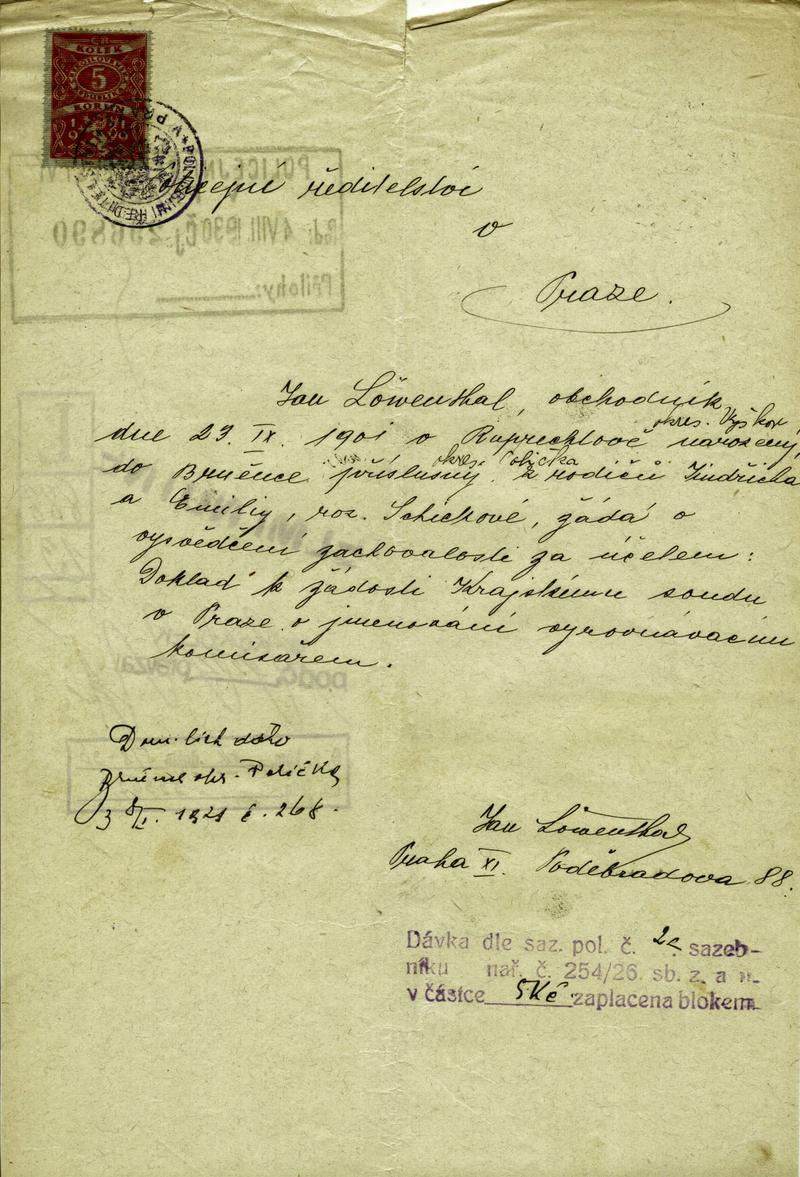 KOLEK
5
KORUN
Policejní ředitelství
v
Praze.
Jan Löwenthal, obchodník,
okres. Vyškov
dne 23. IX. 1901 v Ruprechtově narozený,
okres Polička
do Brněnce příslušný z rodičů Jindřicha
a Emilie, roz. Schickové, žádá o
vysvědčení zachovalosti za účelem:
Doklad k žádosti Krajskému soudu
v Praze o jmenování vyrovnávacím
komisařem.
Dom. list dúto
Brněnec okr. Polička
1921 č. 268.
Jan Löwenthal
Praha XI. Poděbradova 88.
Dávka dle saz. pol. č. 2a sazeb-
níku nař. č. 254/26. sb. z. a n.
v částce 5Kč zaplacena blokem
POLICEJNÍ
4 VIII. 1930 Čj 296890
Přílohy: